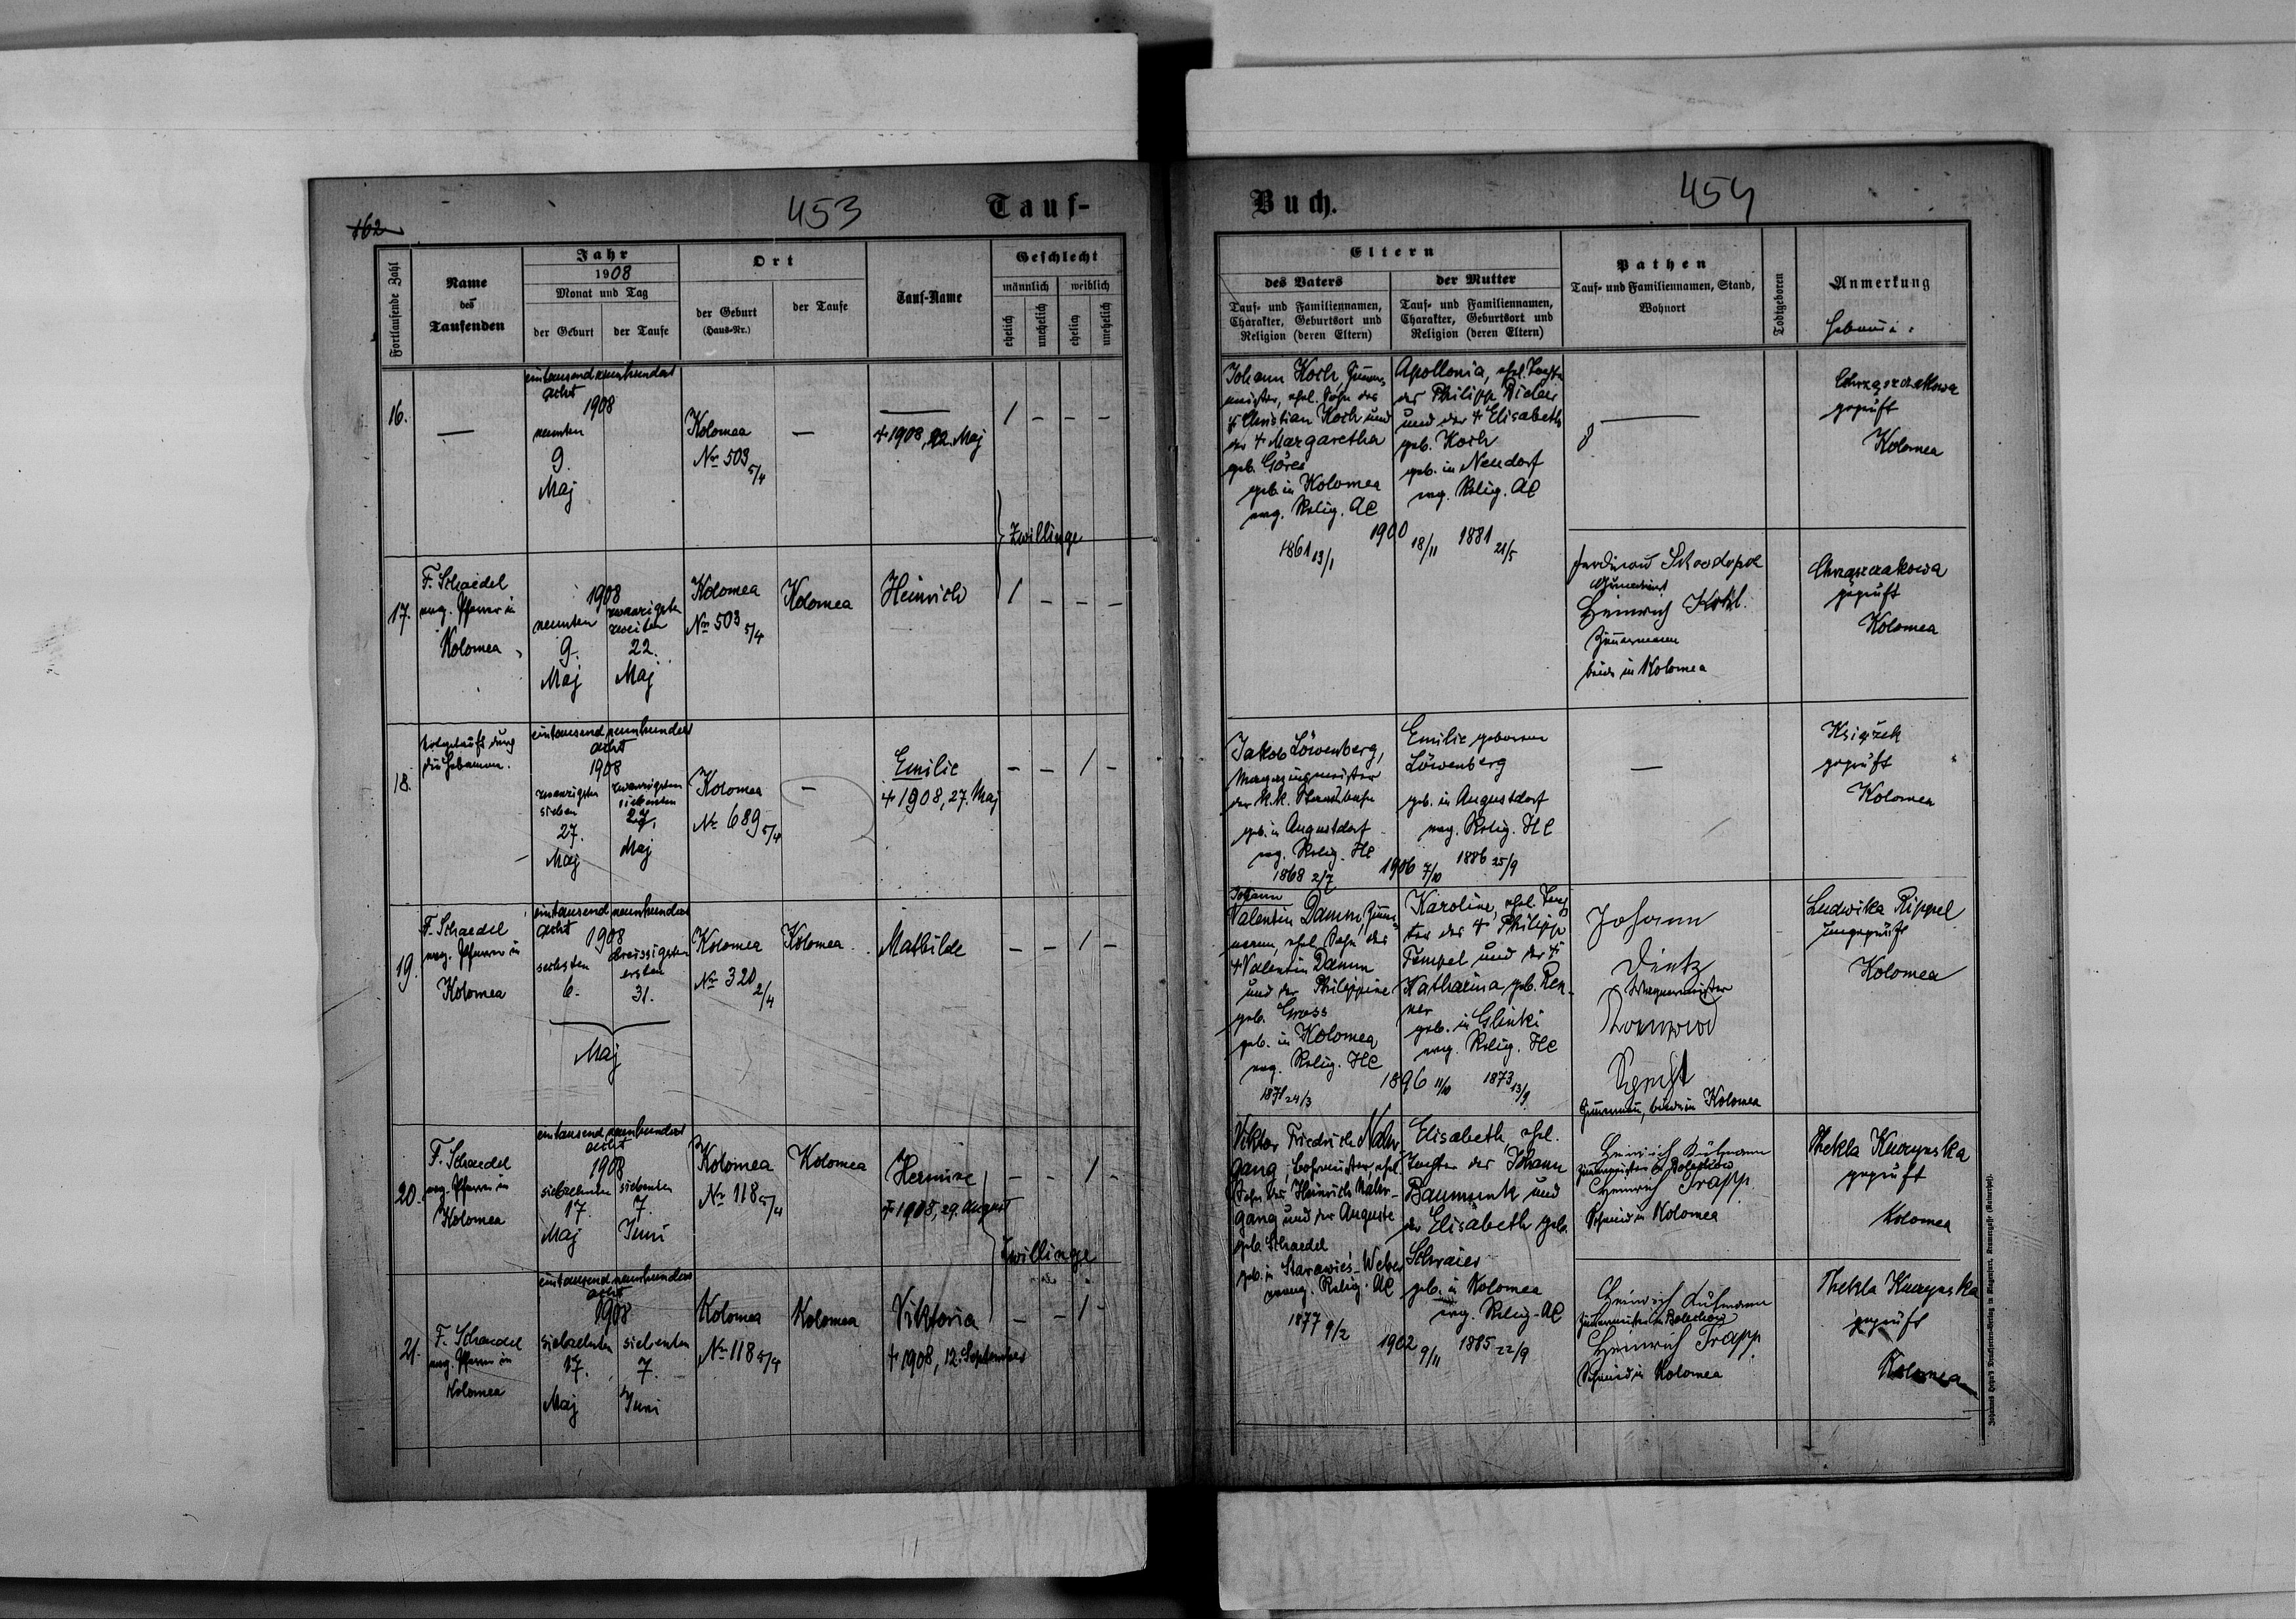 162
453
Tauf-
Fortlaufende Zahl
Name
des
Taufenden
Jahr
1908
Monat und Tag
der Geburt
der Taufe
Ort
der Geburt
(Haus-Nr.)
der Taufe
Tauf-Name
Geschlecht
männlich
weiblich
ehelich
unehelich
ehelich
unehelich
16.
—
eintausend neunhundert
acht
1908
neunten
9.
Maj
Kolomea
Nr 503 5/4
—
—
+ 1908, 22. Maj
/ - - -
Zwillinge
17.
F. Schaedel
evg. Pfarrer in
Kolomea
1908
neunten
9.
Maj
zwanzigsten
zweiten
22.
Maj
Kolomea
Nr 503 5/4
Kolomea
Heinrich
/ - - -
18.
notgetauft durch
die Hebamme.
eintausend neunhundert
acht
1908
zwanzigsten
sieben
27.
Maj
zwanzigsten
siebenten
27.
Maj
Kolomea
Nr 689 5/4
—
Emilie
+ 1908, 27. Maj
- - / -
19.
F. Schaedel
evg. Pfarrer in
Kolomea
eintausend neunhundert
acht
1908
sechsten
6.
dreissigsten
ersten
31.
Maj
Kolomea
Nr 320 2/4
Kolomea
Mathilde
- - / -
20.
F. Schaedel
evg. Pfarrer in
Kolomea
eintausend neunhundert
acht
1908
siebzehnten
17.
Maj
siebenten
7.
Juni
Kolomea
Nr 118 5/4
Kolomea
Hermine
+ 1908, 29. August
- - / -
Zwillinge
21.
F. Schaedel
evg. Pfarrer in
Kolomea
eintausend neunhundert
acht
1908
siebzehnten
17.
Maj
siebenten
7.
Juni
Kolomea
Nr 118 5/4
Kolomea
Viktoria
+ 1908, 12. September
- - / -
Buch.
454
Eltern
des Vaters
Tauf- und Familiennamen,
Charakter, Geburtsort und
Religion (deren Eltern)
der Mutter
Tauf- und Familiennamen,
Charakter, Geburtsort und
Religion (deren Eltern)
Pathen
Tauf- und Familiennamen, Stand,
Wohnort
Todtgeboren
Anmerkung
Johann Koch, Zimmer-
meister, ehel. Sohn des
+ Christian Koch und
der + Margaretha
geb. Göres
geb. in Kolomea
evg. Relig. AC
1861 13/1
1900 18/11
Apollonia, ehel. Tochter
des Philipp
und der + Elisabeth
geb. Koch
geb. in Neudorf
evg. Relig. AC
1881 21/5
—
Chrząszczakowa
geprüft
Kolomea
Ferdinand
Heinrich
Zimmermann
beide in Kolomea
Chrząszczakowa
geprüft
Kolomea
Jakob Löwenberg,
Magazinsmeister
der K.K. Staatsbahn
geb. in Augustdorf
evg. Relig. HC
1868 2/7
1906 7/10
Emilie geborene
Löwenberg
geb. in Augustdorf
evg. Relig. HC
1886 25/9
—
Książek
geprüft
Kolomea
Johann
Valentin Damm, Zimmer-
mann, ehel. Sohn des
+ Valentin Damm
und der Philippine
geb. Gross
geb. in Kolomea
evg. Relig. HC
1871 24/3
1896 11/10
Karoline, ehel. Toch-
ter des + Philipp
Tempel und der +
Katharina geb. Ren-
ner
geb. in Glinki
evg. Relig. HC
1873 13/9
Johann
Dietz
Wagnermeister
Zimmermann, beide in Kolomea
Ludwika Rippel
ungeprüft
Kolomea
Viktor Friedrich Nahr-
gang, ehel.
Sohn des Heinrich Nahr-
gang und der Auguste
geb. Schaedel
geb. in Starawieś-Weber
evg. Relig. AC
1877 9/2
1902 9/11
Elisabeth, ehel.
Tochter des Johann
Baumunk und
der Elisabeth geb.
Schraier
geb. in Kolomea
evg. Relig. AC
1885 22/9
Heinrich
Heinrich Trapp
Schmied in Kolomea
Thekla
geprüft
Kolomea
Heinrich
Heinrich Trapp
Schmied in Kolomea
Thekla
geprüft
Kolomea